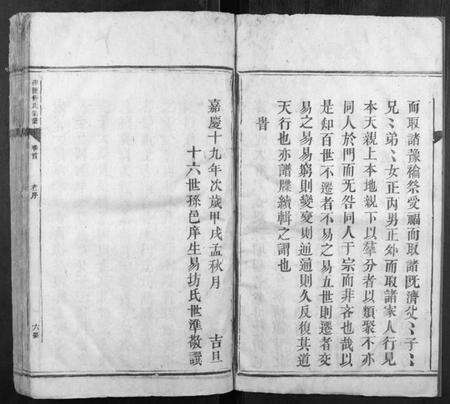 而取諸豫禴祭受福而取諸既濟父〻子〻
兄〻弟〻女正內男正外而取諸家人行見
本天親上本地親下以羣分者以類聚不亦
同人於門而无咎同人于宗而非吝也哉以
是知百世不遷者不易之易五世則遷者變
易之易易窮則變變則通通則久反復其道
天行也亦譜牒續輯之謂也
旹
嘉慶十九年次歲甲戌孟秋月 吉旦
十六世孫邑庠生易坊氏世準敬譔
卷首
序
六